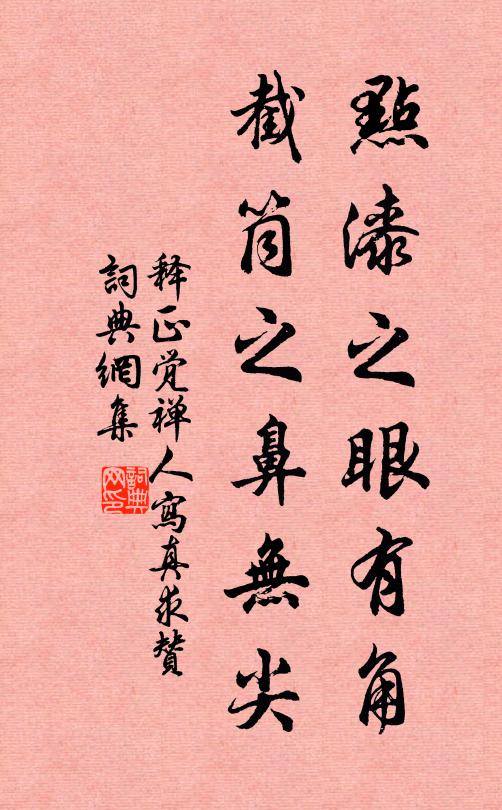 點漆之眼有角
截筒之鼻無尖
释正觉禅人寫真求贊
詞典網集
詞典
网印